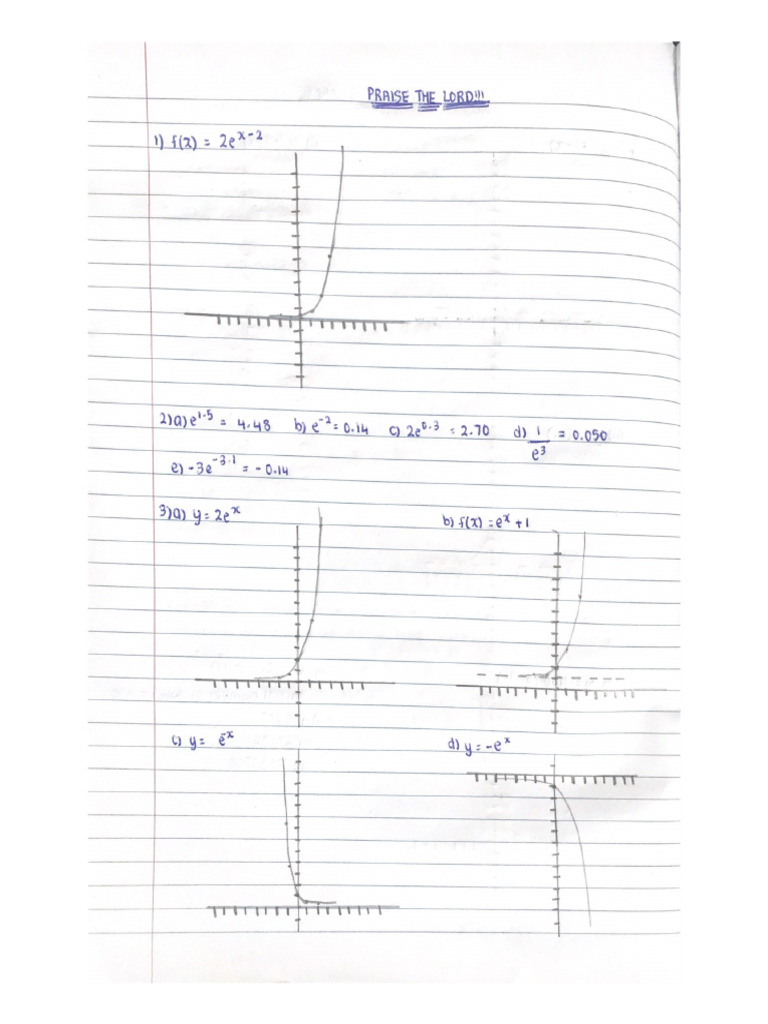 PRAISE THE LORD!!!
1) f(x) = 2e^x-2
2)a) e^1.5 = 4.48 b) e^-2 = 0.14 c) 2e^0.3 = 2.70 d) 1/e^3 = 0.050
e) -3e^-3.1 = -0.14
3)a) y = 2e^x b) f(x) = e^x + 1
c) y = e^-x d) y = -e^x